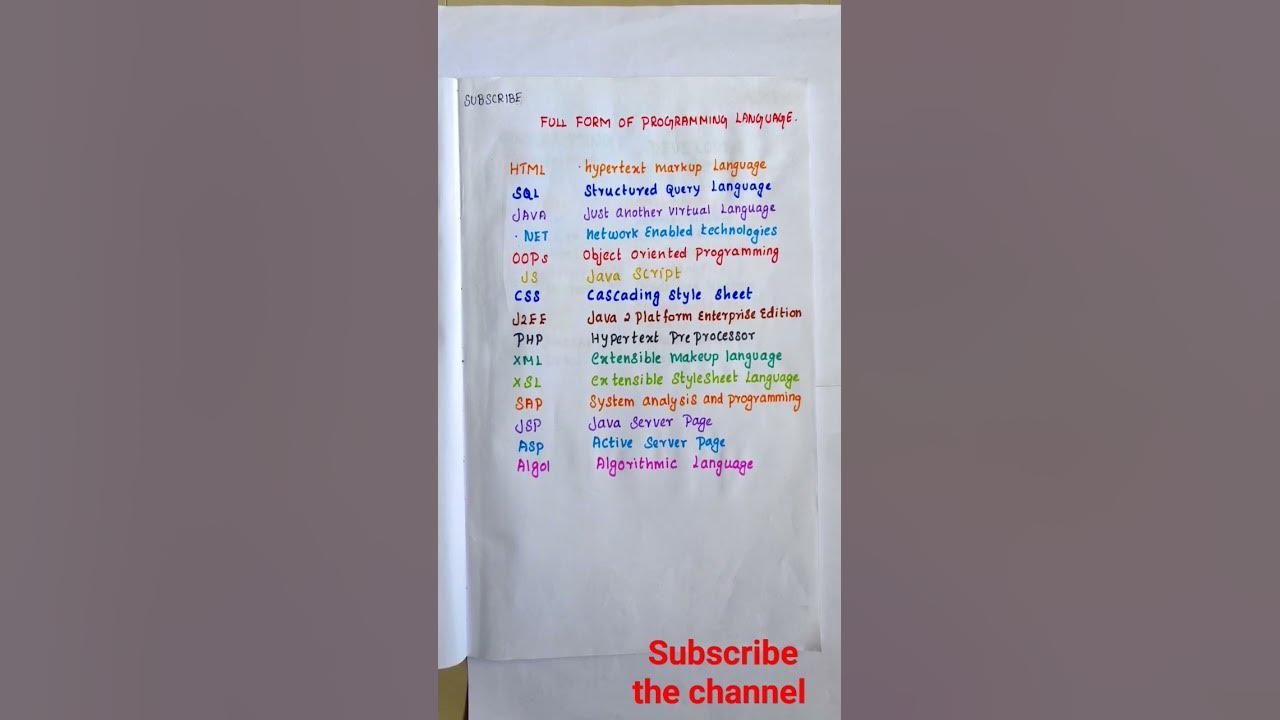 SUBSCRIBE
FULL FORM OF PROGRAMMING LANGUAGE.
HTML hypertext markup Language
SQL Structured Query Language
JAVA Just another virtual Language
.NET Network Enabled technologies
OOPs Object oriented programming
JS Java Script
CSS Cascading style sheet
J2EE Java 2 Platform Enterprise Edition
PHP Hypertext PreProcessor
XML extensible makeup language
XSL extensible StyleSheet Language
SAP System analysis and programming
JSP Java Server Page
ASP Active Server Page
Algol Algorithmic Language
Subscribe
the channel